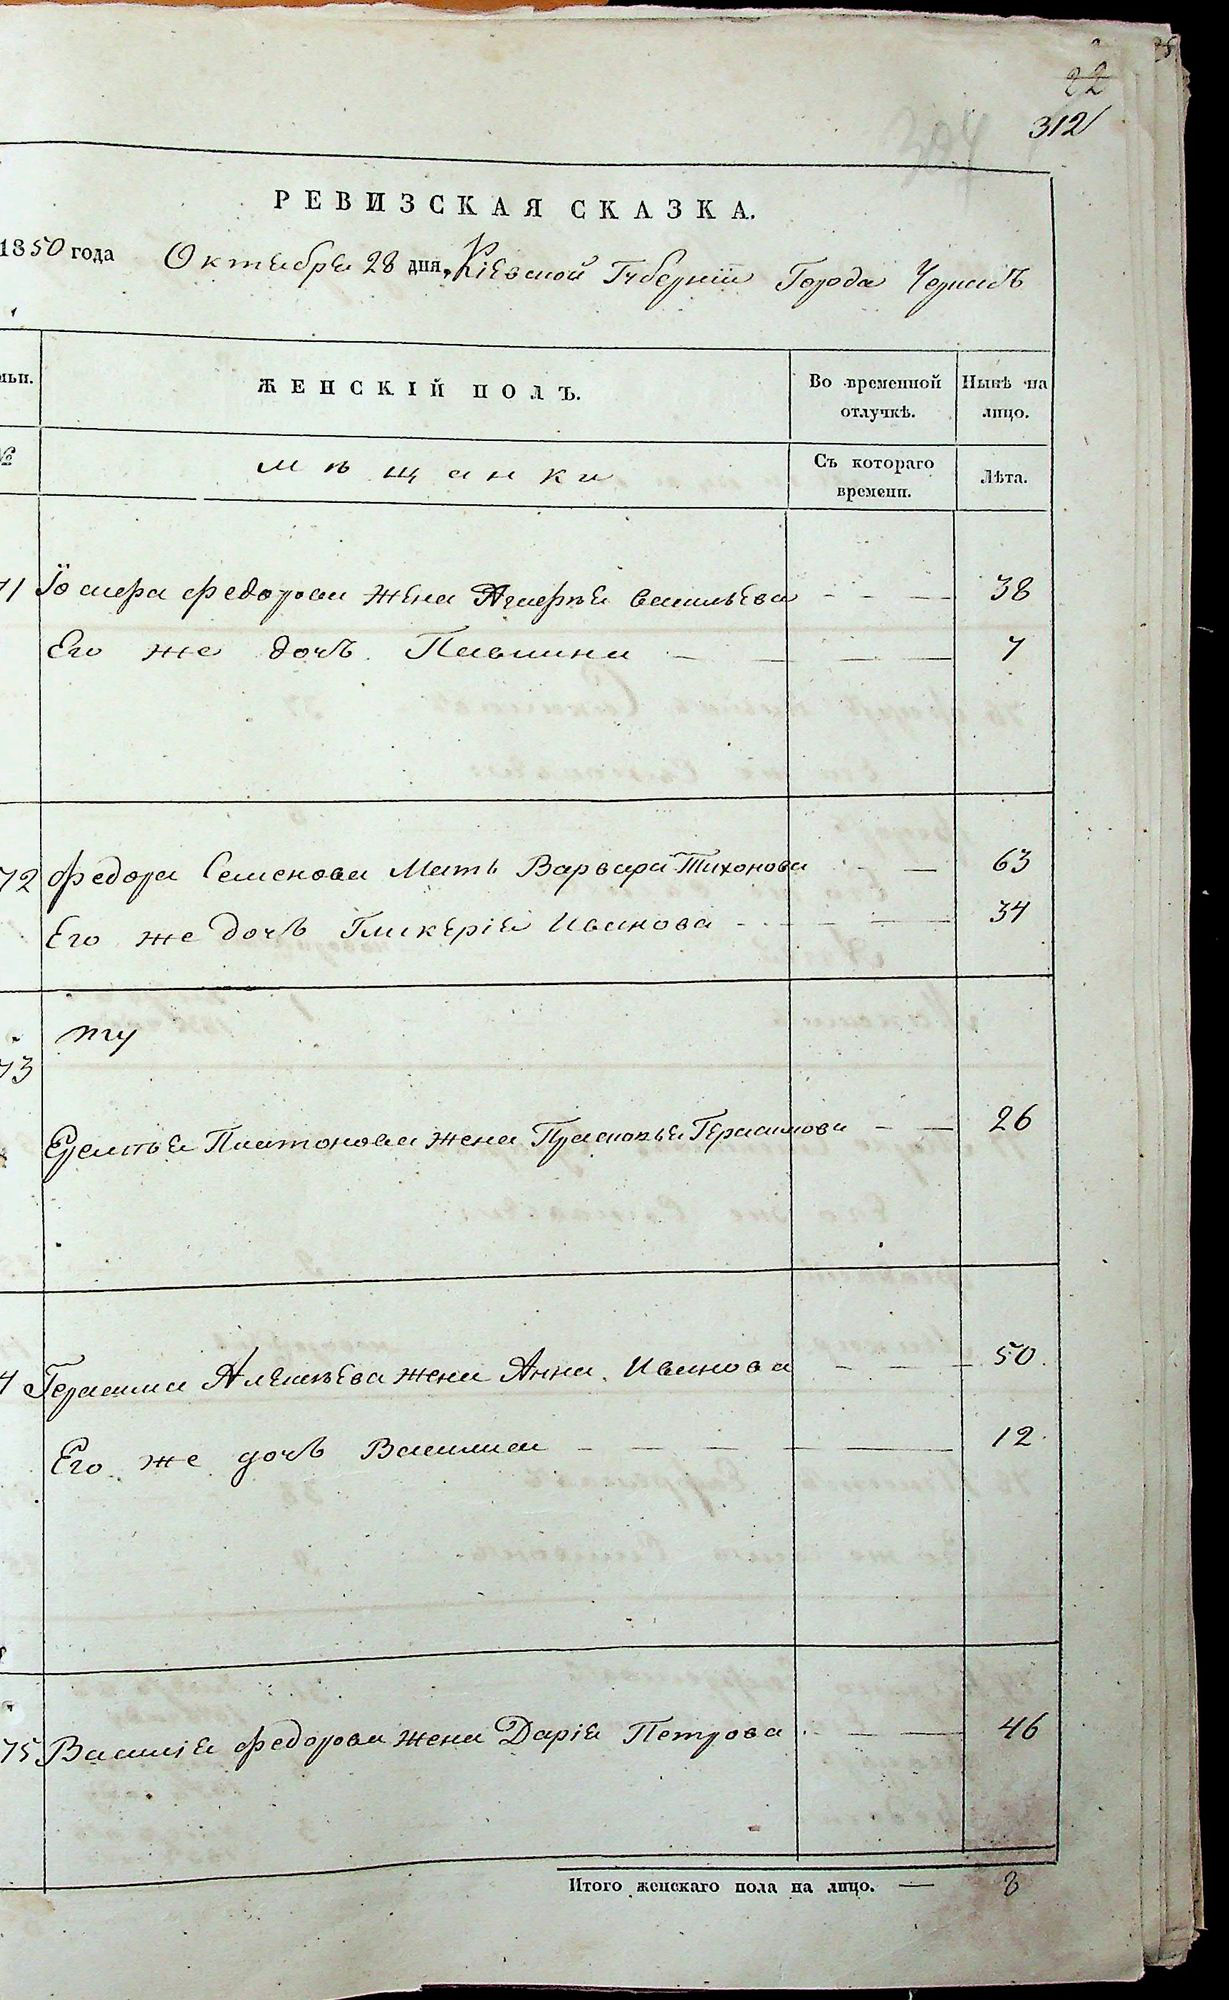 22
312
304
РЕВИЗСКАЯ СКАЗКА.
1850 года Октября 28 дня, Кіевской Губерніи Города Черкасъ
ЖЕНСКІЙ ПОЛЪ.
Во временной отлучкѣ.
Нынѣ на лицо.
№
мѣщанки
Съ котораго времени.
Лѣта.
71 Федорова жена Агафья Васильева 38
Его же дочь Павлина 7
72 Федора Семенова Мать Варвара Тихонова 63
Его же дочь Гликерія Иванова 34
73
Платонова жена Прасковья Герасимова 26
4 Герасима Алексѣева жена Анна Иванова 50
Его же дочь 12
75 Василія Федорова жена Дарія Петрова 46
Итого женскаго пола на лицо. 8